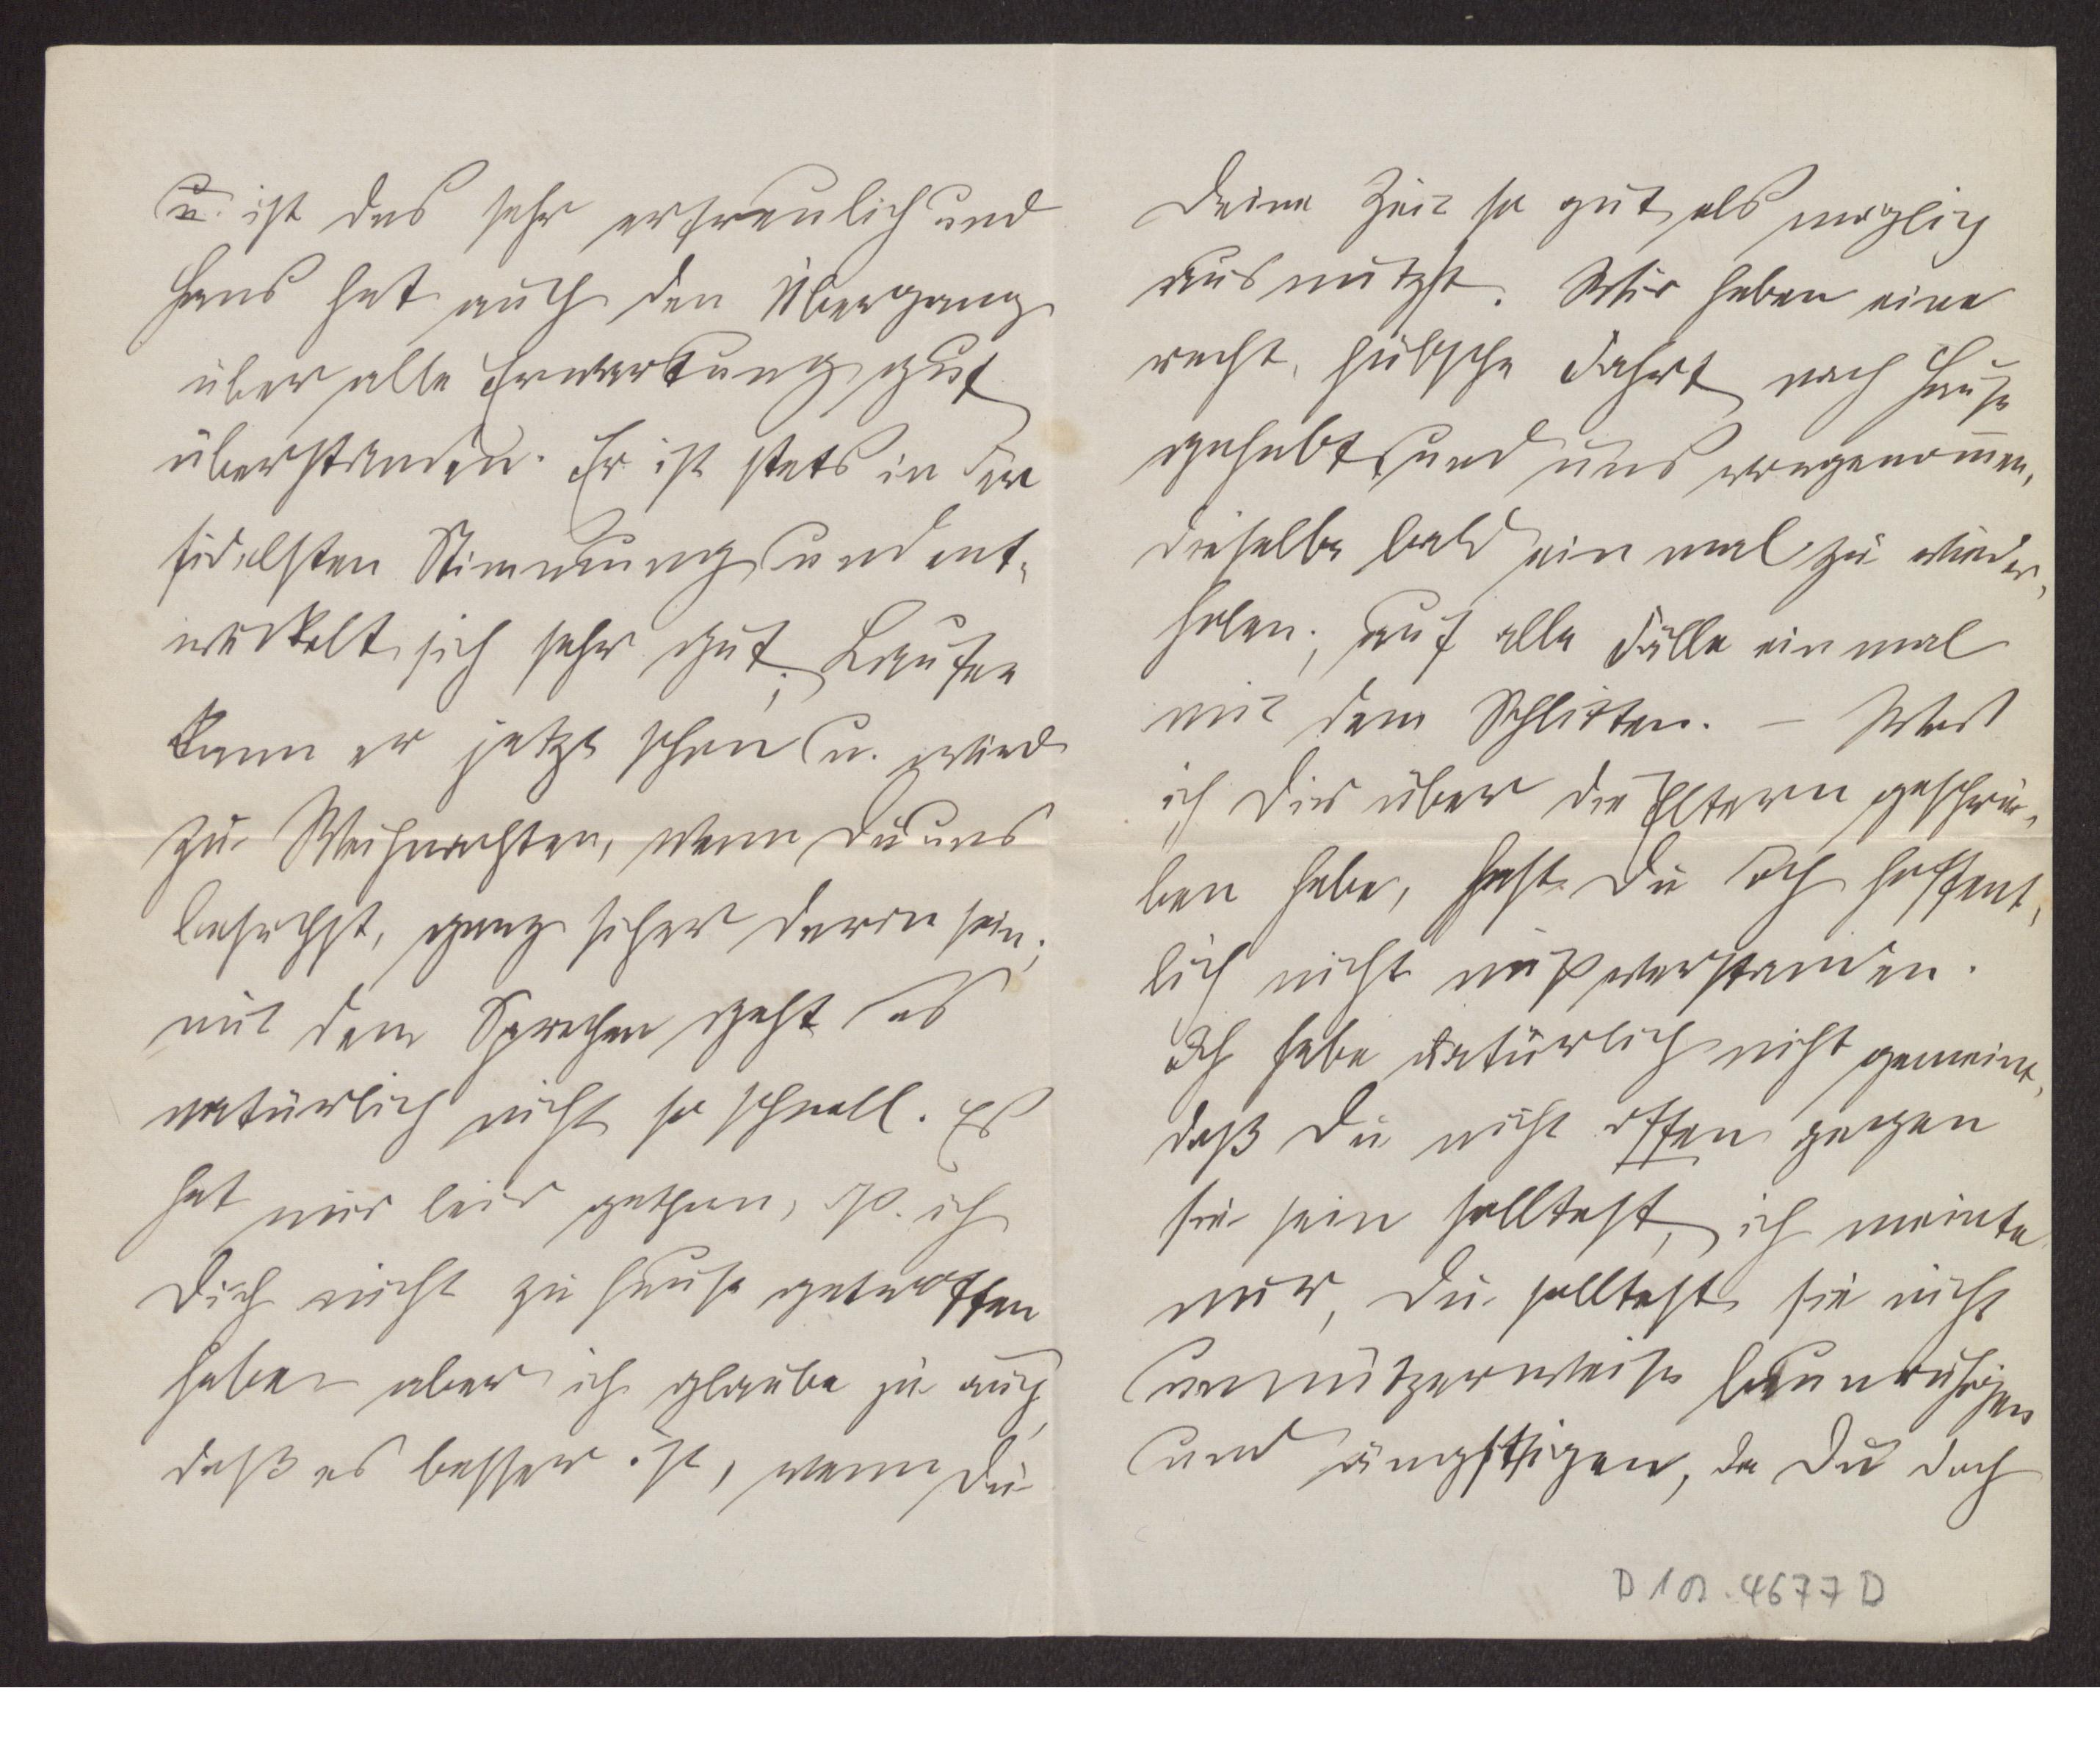 u. ist das sehr erfreulich und
Hans hat auch den Übergang
über alle Erwartung gut
überstanden. Er ist stets in der
fidelsten Stimmung und ent-
wickelt sich sehr gut; Laufen
kann er jetzt schon u. wird
zu Weihnachten, wenn Du uns
besuchst, ganz sicher darin sein;
mit dem Sprechen geht es
natürlich nicht so schnell. Es
hat mir leid gethan, dß. ich
Dich nicht zu Hause getroffen
habe, aber ich glaube ja auch,
daß es besser ist, wenn Du
Deine Zeit so gut als möglich
ausnutzst. Wir haben eine
recht hübsche Fahrt nach Hause
gehabt und uns vorgenom̄en,
dieselbe bald einmal zu wieder-
holen; auf alle Fälle einmal
mit dem Schlitten. – Was
ich Dir über die Eltern geschrie-
ben habe, hast Du doch hoffent-
lich nicht mißverstanden.
Ich habe natürlich nicht gemeint,
daß Du nicht offen gegen
sie sein solltest, ich meinte
nur, Du solltest sie nicht
unnützerweise beunruhigen
und ängstigen, da Du doch
D 4677 D